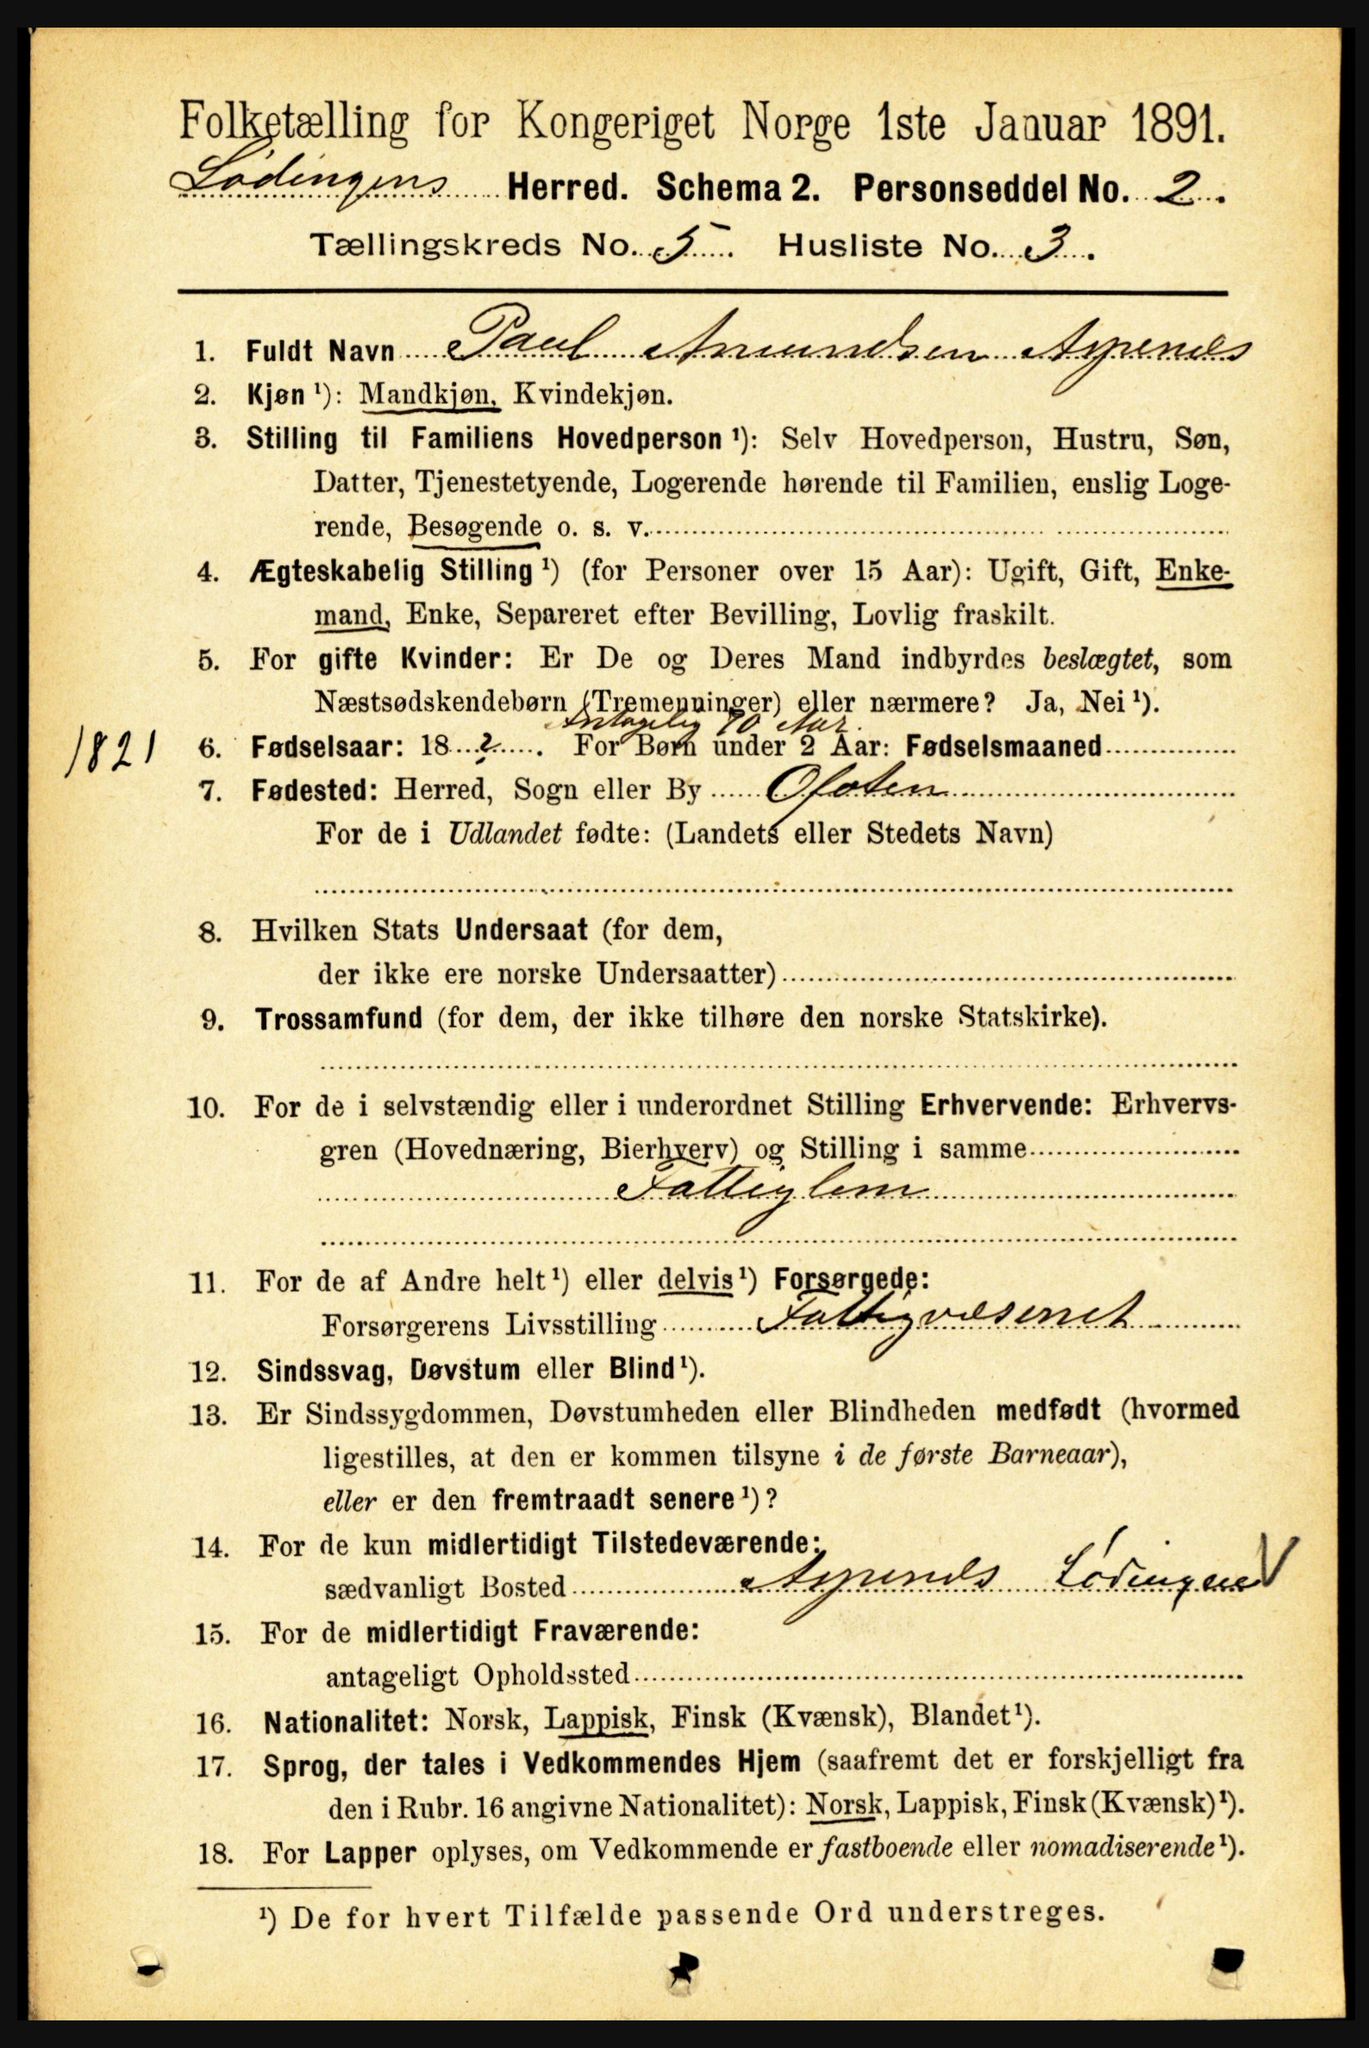 Folketælling for Kongeriget Norge 1ste Januar 1891.
Lødingens Herred. Schema 2. Personseddel No. 2.
Tællingskreds No. 5. Husliste No. 3.
1. Fuldt Navn Paul Amundsen Aspenes
2. Kjøn ¹): Mandkjøn, Kvindekjøn.
3. Stilling til Familiens Hovedperson ¹): Selv Hovedperson, Hustru, Søn,
Datter, Tjenestetyende, Logerende hørende til Familien, enslig Loge-
rende, Besøgende o. s. v.
4. Ægteskabelig Stilling ¹) (for Personer over 15 Aar): Ugift, Gift, Enke-
mand, Enke, Separeret efter Bevilling, Lovlig fraskilt.
5. For gifte Kvinder: Er De og Deres Mand indbyrdes beslægtet, som
Næstsødskendebørn (Tremenninger) eller nærmere? Ja, Nei ¹).
Antagelig 70 Aar.
1821 6. Fødselsaar: 18 ? . For Børn under 2 Aar: Fødselsmaaned
7. Fødested: Herred, Sogn eller By Ofoten
For de i Udlandet fødte: (Landets eller Stedets Navn)
8. Hvilken Stats Undersaat (for dem,
der ikke ere norske Undersaatter)
9. Trossamfund (for dem, der ikke tilhøre den norske Statskirke).
10. For de i selvstændig eller i underordnet Stilling Erhvervende: Erhvervs-
gren (Hovednæring, Bierhverv) og Stilling i samme
Fattiglem
11. For de af Andre helt ¹) eller delvis ¹) Forsørgede:
Forsørgerens Livsstilling Fattigvæsenet
12. Sindssvag, Døvstum eller Blind ¹).
13. Er Sindssygdommen, Døvstumheden eller Blindheden medfødt (hvormed
ligestilles, at den er kommen tilsyne i de første Barneaar),
eller er den fremtraadt senere ¹)?
14. For de kun midlertidigt Tilstedeværende:
sædvanligt Bosted Aspenes Lødingen V
15. For de midlertidigt Fraværende:
antageligt Opholdssted
16. Nationalitet: Norsk, Lappisk, Finsk (Kvænsk), Blandet ¹).
17. Sprog, der tales i Vedkommendes Hjem (saafremt det er forskjelligt fra
den i Rubr. 16 angivne Nationalitet): Norsk, Lappisk, Finsk (Kvænsk) ¹).
18. For Lapper oplyses, om Vedkommende er fastboende eller nomadiserende ¹).
¹) De for hvert Tilfælde passende Ord understreges.